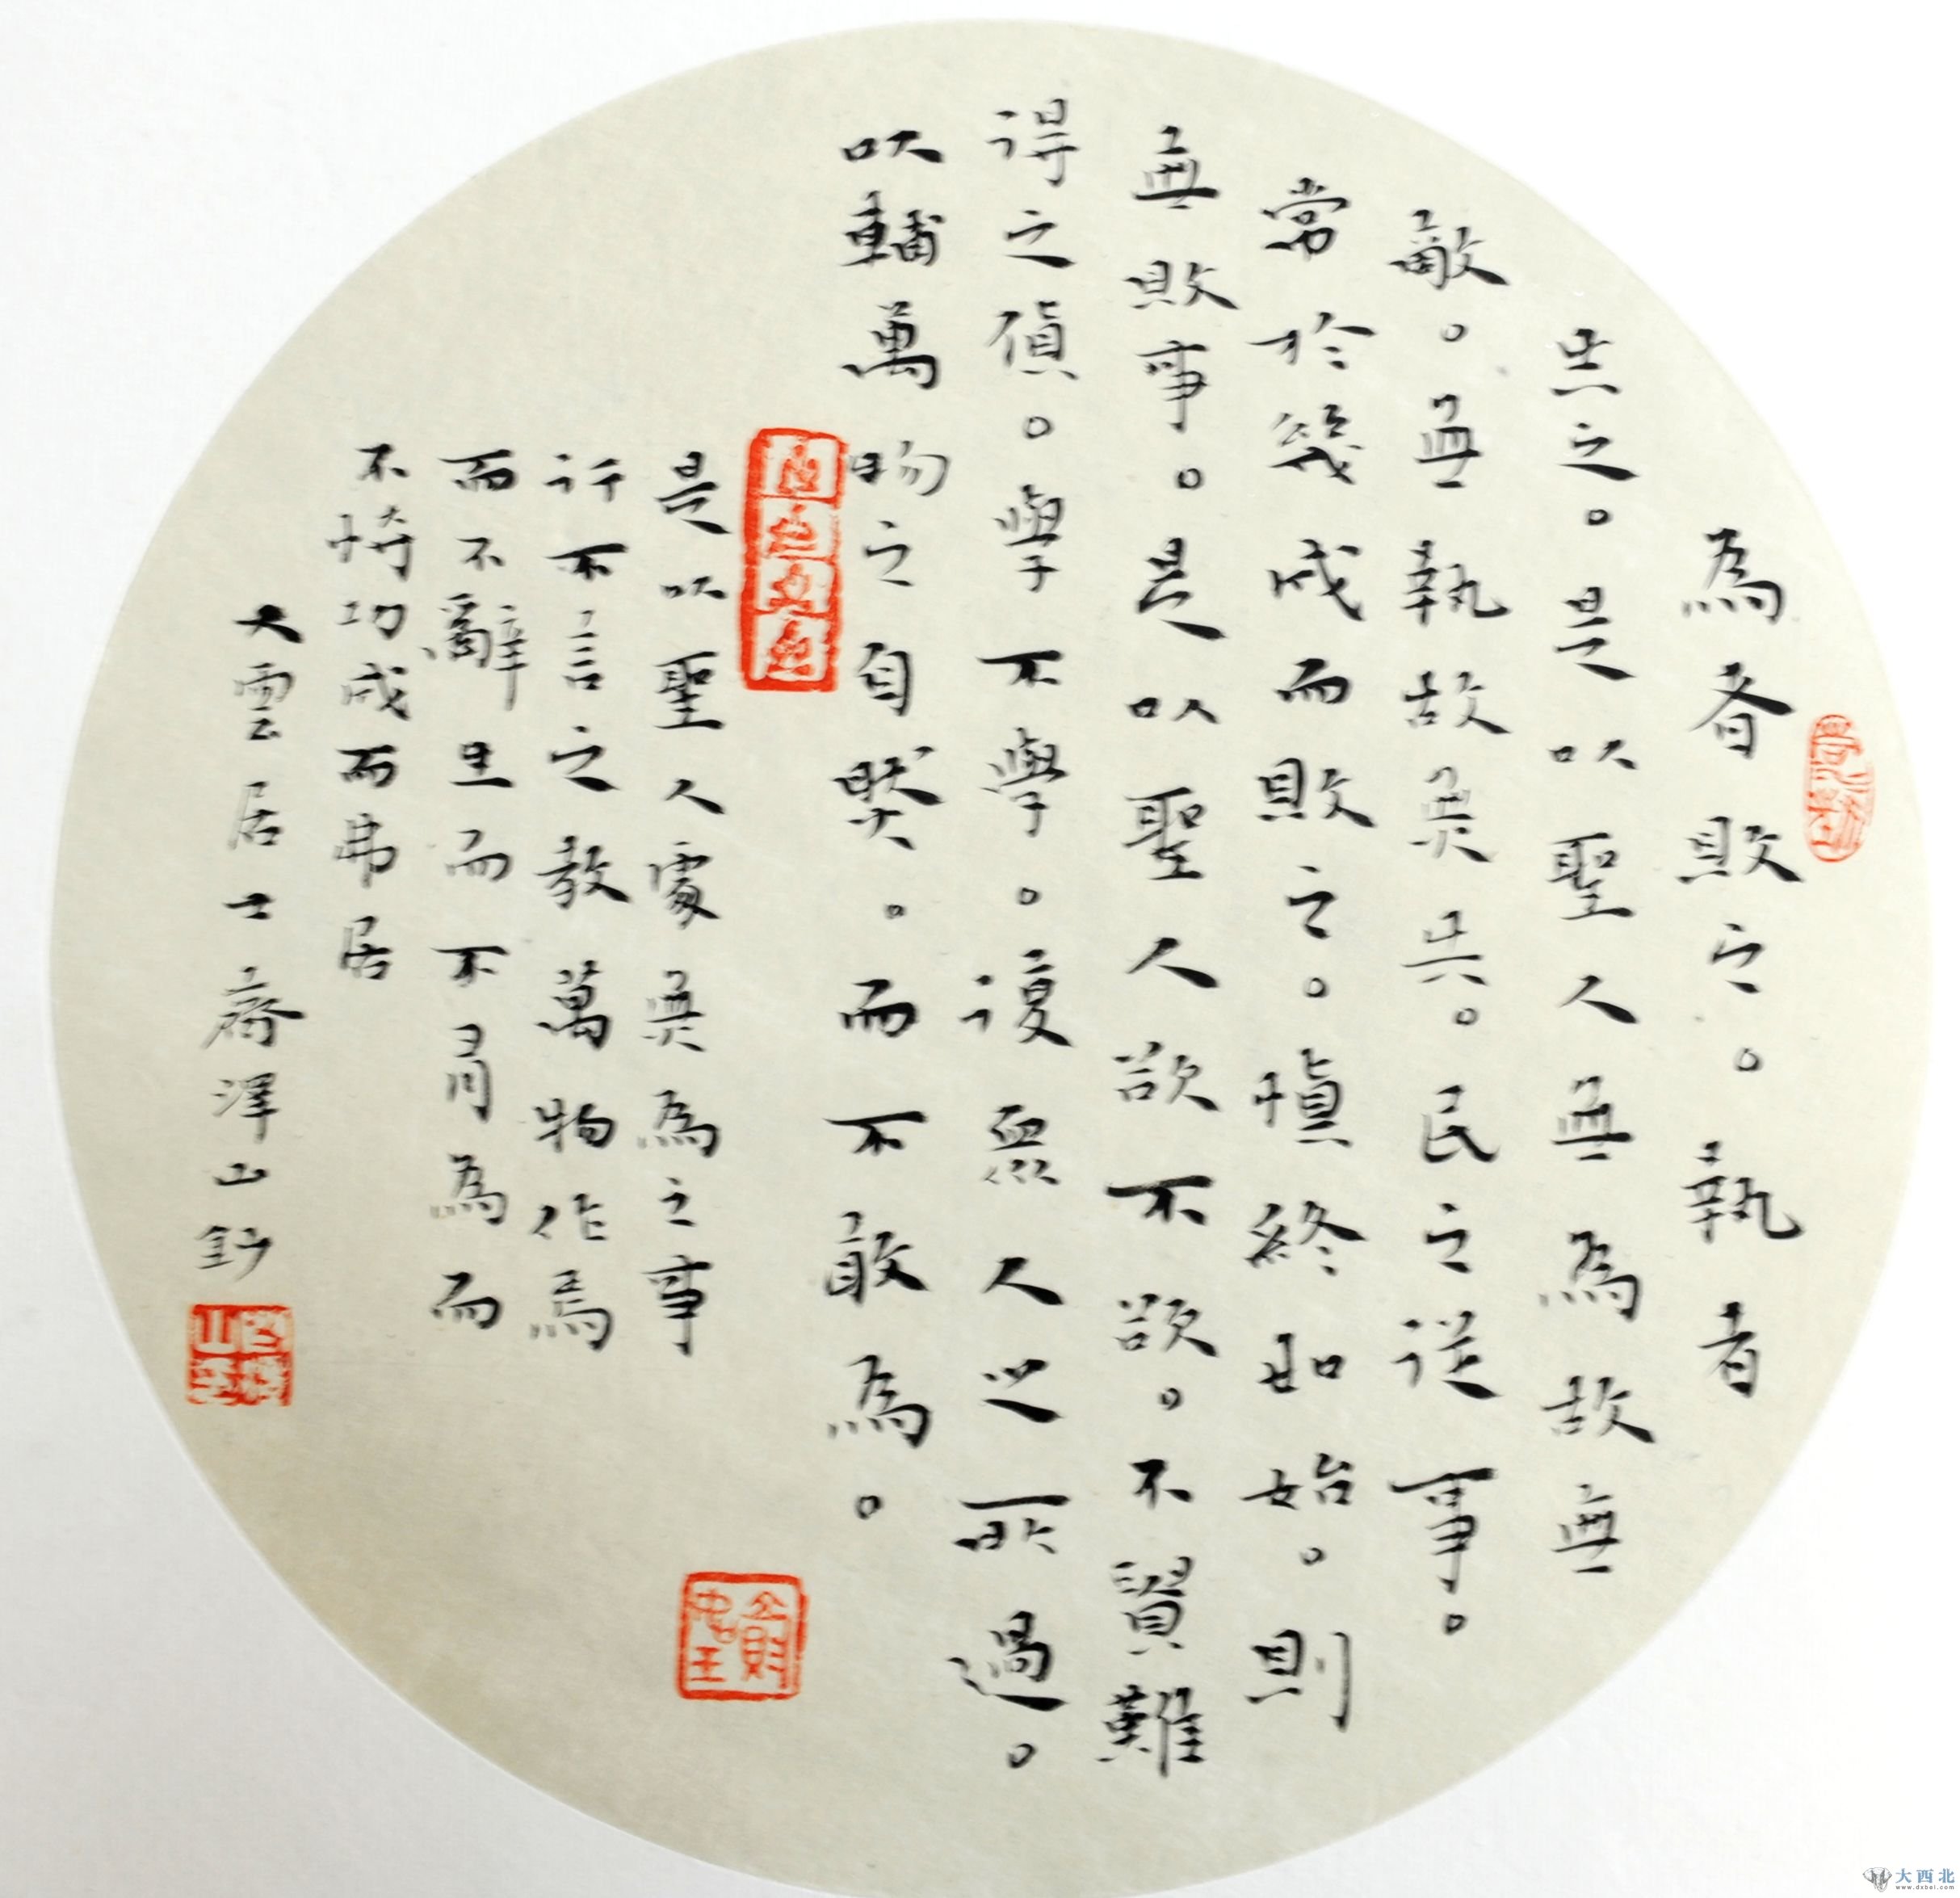 為者敗之。執者
失之。是以聖人無為故無
敵。無執故無失。民之從事。
常於幾成而敗之。慎終如始。則
無敗事。是以聖人欲不欲。不貿難
得之貨。學不學。復衆人之所過。
以輔萬物之自然。而不敢為。
是以聖人處無為之事
行不言之教萬物作焉
而不辭生而不有為而
不恃功成而弗居
大雲居士齋澤山鈔
大西北
www.dxbei.com